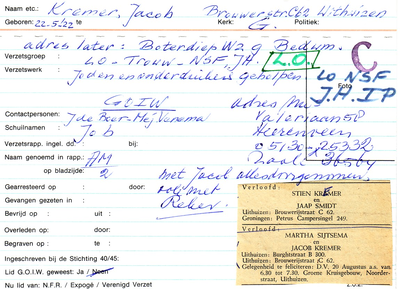 Naam etc.: Kremer, Jacob Brouwerstr. C62 Uithuizen
Geboren: 22-5-'22 te Kerk: G. Politiek:
adres later: Boterdiep W2.9 Bedum.
Verzetsgroep: LO - Trouw - NSF, J.H. L.O.
Verzetswerk Joden en onderduikers geholpen.
C
LO NSF
Foto
J.H. IP
G.O.I.W. adres
Contactpersonen: J de Boer - Mej Venema Valeriaan 58
Schuilnamen Job Heerenveen
Verzetsrapp. ingel. dd.: bij: 05130-25332
Naam genoemd in rapp.: AM
op bladzijde: 2 met Jacob alles doorgenomen
Gearresteerd op : door: ook met
Gevangen gezeten in : Reker.
Bevrijd op : uit :
Overleden op: door:
Begraven op : te :
Ingeschreven bij de Stichting 40/45:
Lid G.O.I.W. geweest: Ja / Neen
Nu lid van: N.F.R. / Expogé / Verenigd Verzet
Verloofd:
STIEN KREMER
en
JAAP SMIDT
Uithuizen: Brouwerijstraat C 62.
Groningen: Petrus Campersingel 249.
Verloofd:
MARTHA SIJTSEMA
en
JACOB KREMER
Uithuizen: Burghtstraat B 300.
Uithuizen: Brouwerijstraat C 62.
Gelegenheid te feliciteren: D.V. 20 Augustus a.s. van
6.30 tot 7.30. Groene Kruisgebouw, Noorder-
straat, Uithuizen.